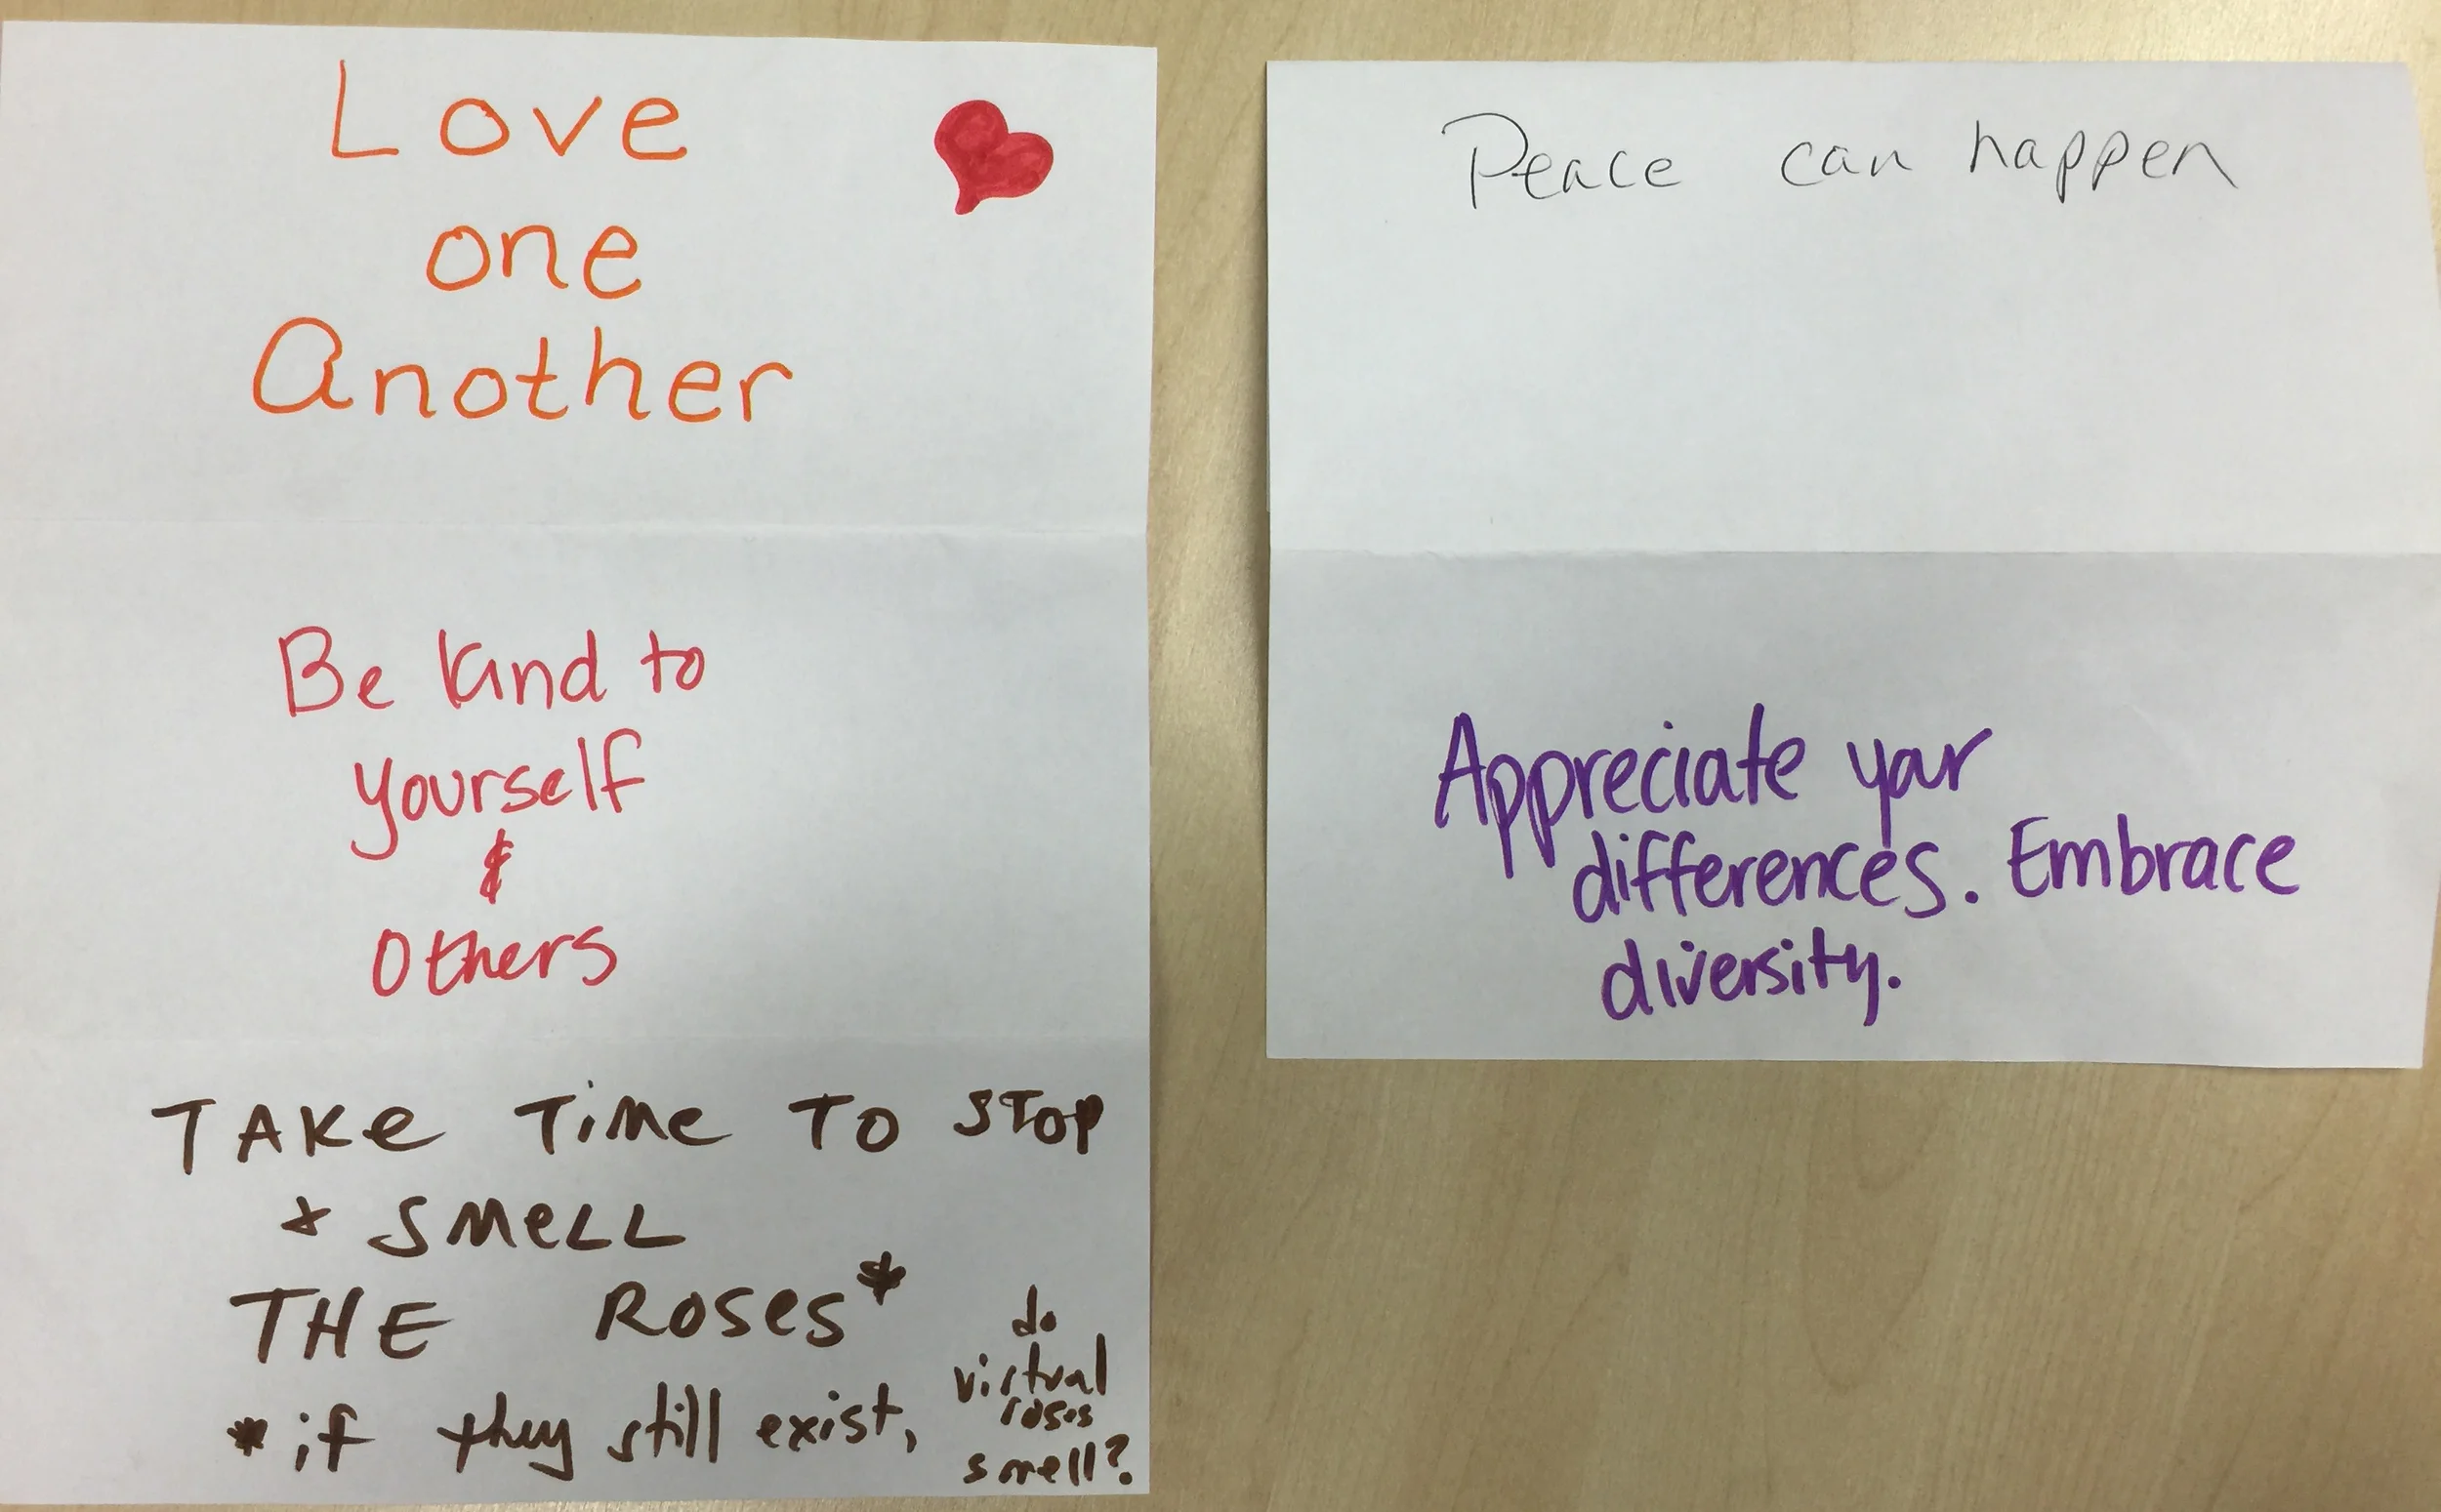 Love
one
Another
Be kind to
yourself
&
others
TAKe TiMe TO STOP
+ SMeLL
THE RoSeS*
*if they still exist,
do
virtual
roses
smell?
Peace can happen
Appreciate your
differences. Embrace
diversity.